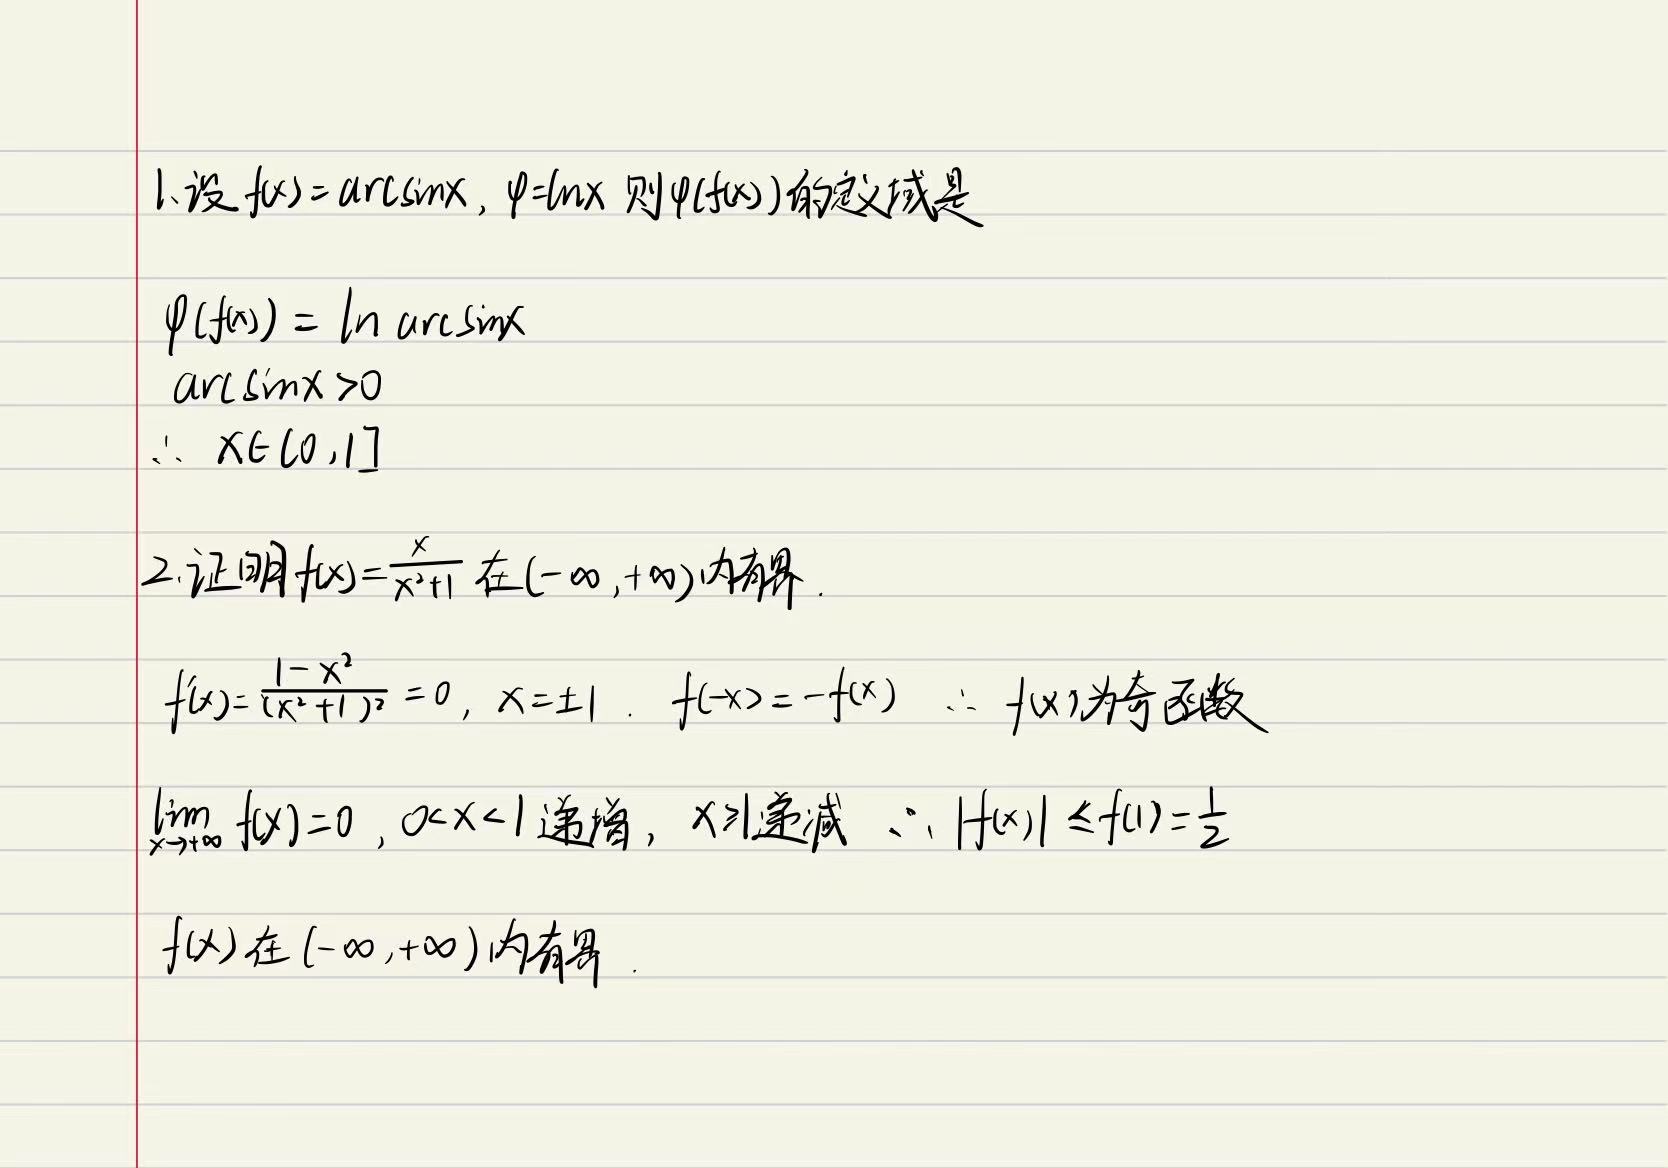 1、设 f(x)=arcsinx, φ=lnx 则φ(f(x))的定义域是
φ(f(x)) = ln arcsinx
arcsinx>0
∴ x∈(0,1]
2、证明f(x)=\frac{x}{x²+1} 在(-∞,+∞)内有界.
f'(x)=\frac{1-x²}{(x²+1)²}=0, x=±1. f(-x)=-f(x) ∴ f(x)为奇函数
\lim_{x→+∞} f(x)=0, 0<x<1递增, x≥1递减 ∴ |f(x)|≤f(1)=\frac{1}{2}
f(x)在(-∞,+∞)内有界.